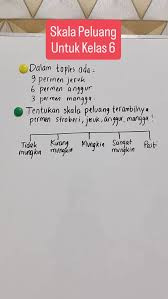 Skala Peluang
Untuk Kelas 6
Dalam toples ada :
9 permen jeruk
6 permen anggur
3 permen mangga
Tentukan skala peluang terambilnya
permen stroberi, jeruk, anggur, mangga !
Tidak mungkin
Kurang mungkin
Mungkin
Sangat mungkin
Pasti